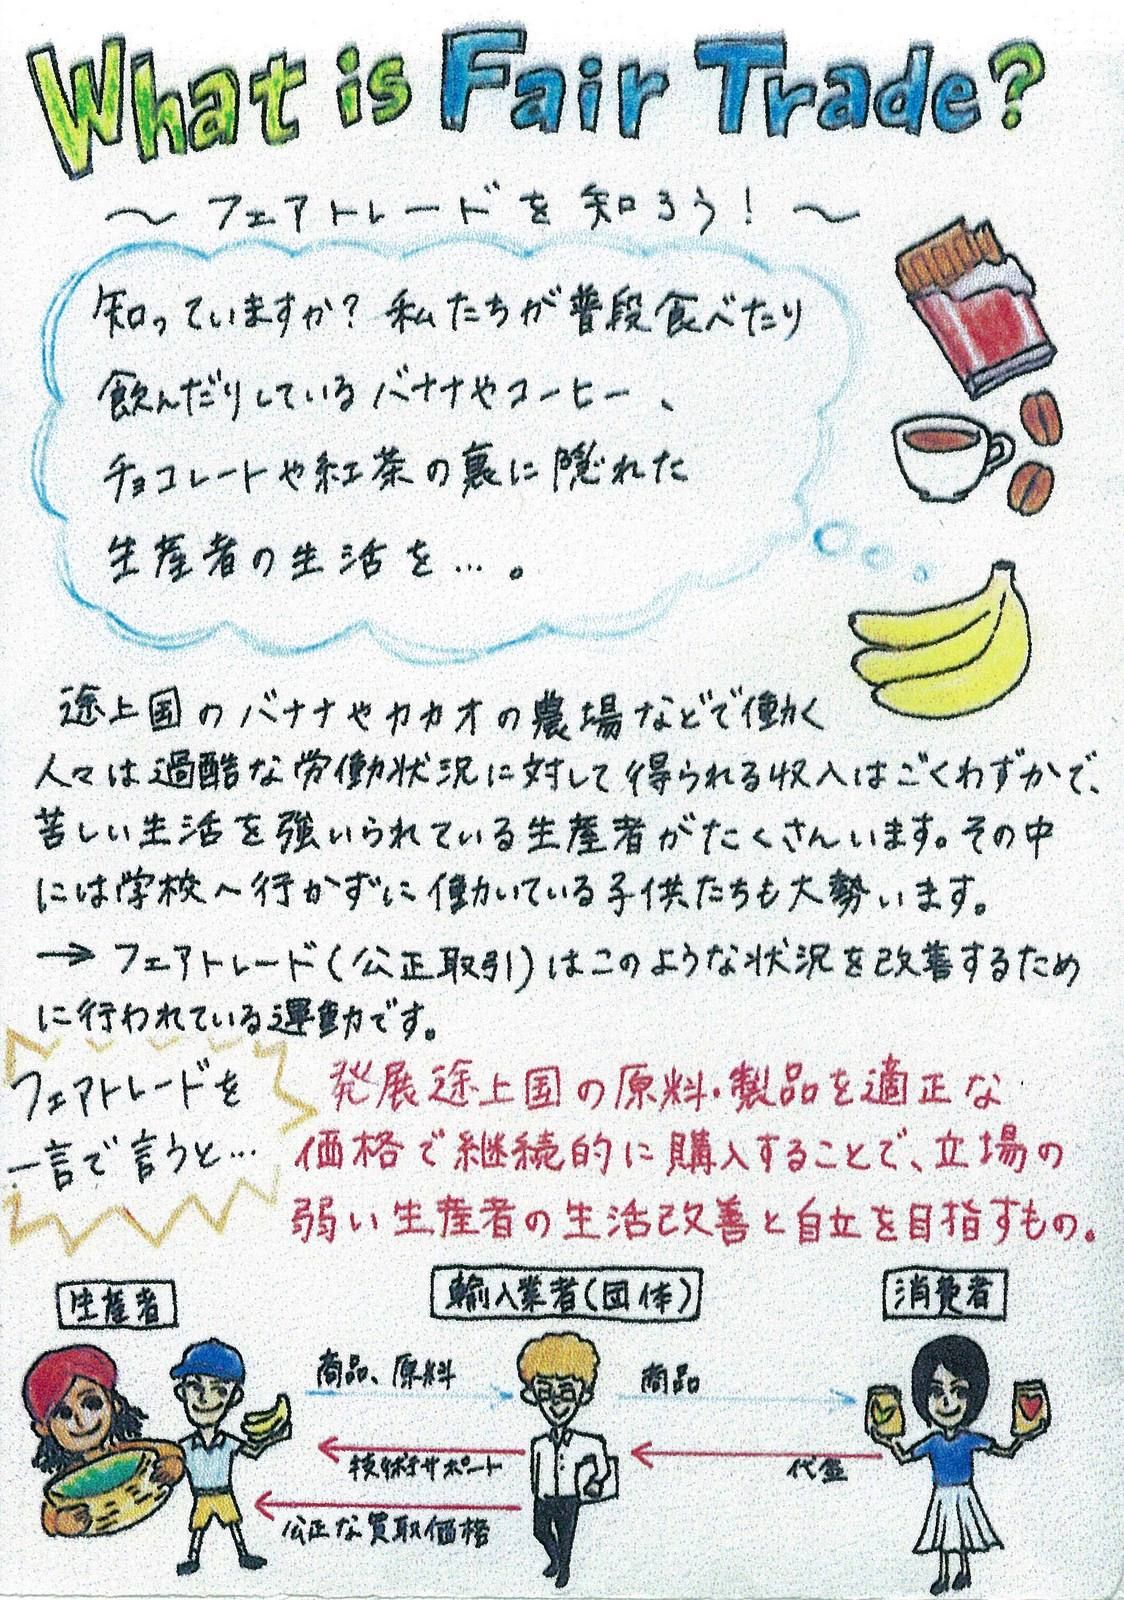 What is Fair Trade?
〜フェアトレードを知ろう!〜
知っていますか?私たちが普段食べたり
飲んだりしているバナナやコーヒー、
チョコレートや紅茶の裏に隠れた
生産者の生活を…。
途上国のバナナやカカオの農場などで働く
人々は過酷な労働状況に対して得られる収入はごくわずかで、
苦しい生活を強いられている生産者がたくさんいます。その中
には学校へ行かずに働いている子供たちも大勢います。
→フェアトレード(公正取引)はこのような状況を改善するため
に行われている運動です。
フェアトレードを
一言で言うと…
発展途上国の原料・製品を適正な
価格で継続的に購入することで、立場の
弱い生産者の生活改善と自立を目指すもの。
生産者
輸入業者(団体)
消費者
商品、原料
商品
技術サポート
代金
公正な買取価格